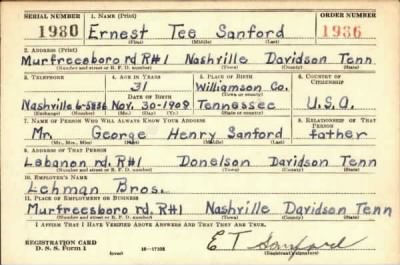 SERIAL NUMBER 1. NAME (Print) ORDER NUMBER
1980 Ernest Tee Sanford 1986
(First) (Middle) (Last)
2. ADDRESS (Print)
Murfreesboro rd. R#1 Nashville Davidson Tenn
(Number and street or R. F. D. number) (Town) (County) (State)
3. TELEPHONE 4. AGE IN YEARS 5. PLACE OF BIRTH 6. COUNTRY OF CITIZENSHIP
31 Williamson Co.
DATE OF BIRTH (Town or county)
Nashville 6-5886 Nov. 30-1908 Tennessee U.S.A.
(Exchange) (Number) (Mo.) (Day) (Yr.) (State or country)
7. NAME OF PERSON WHO WILL ALWAYS KNOW YOUR ADDRESS 8. RELATIONSHIP OF THAT PERSON
Mr. George Henry Sanford father
(Mr., Mrs., Miss) (First) (Middle) (Last)
9. ADDRESS OF THAT PERSON
Lebanon rd. R#1 Donelson Davidson Tenn
(Number and street or R. F. D. number) (Town) (County) (State)
10. EMPLOYER'S NAME
Lehman Bros.
11. PLACE OF EMPLOYMENT OR BUSINESS
Murfreesboro rd. R#1 Nashville Davidson Tenn
(Number and street or R. F. D. number) (Town) (County) (State)
I AFFIRM THAT I HAVE VERIFIED ABOVE ANSWERS AND THAT THEY ARE TRUE.
E T Sanford
REGISTRATION CARD
D. S. S. Form 1 (over) 16-17105 (Registrant's signature)